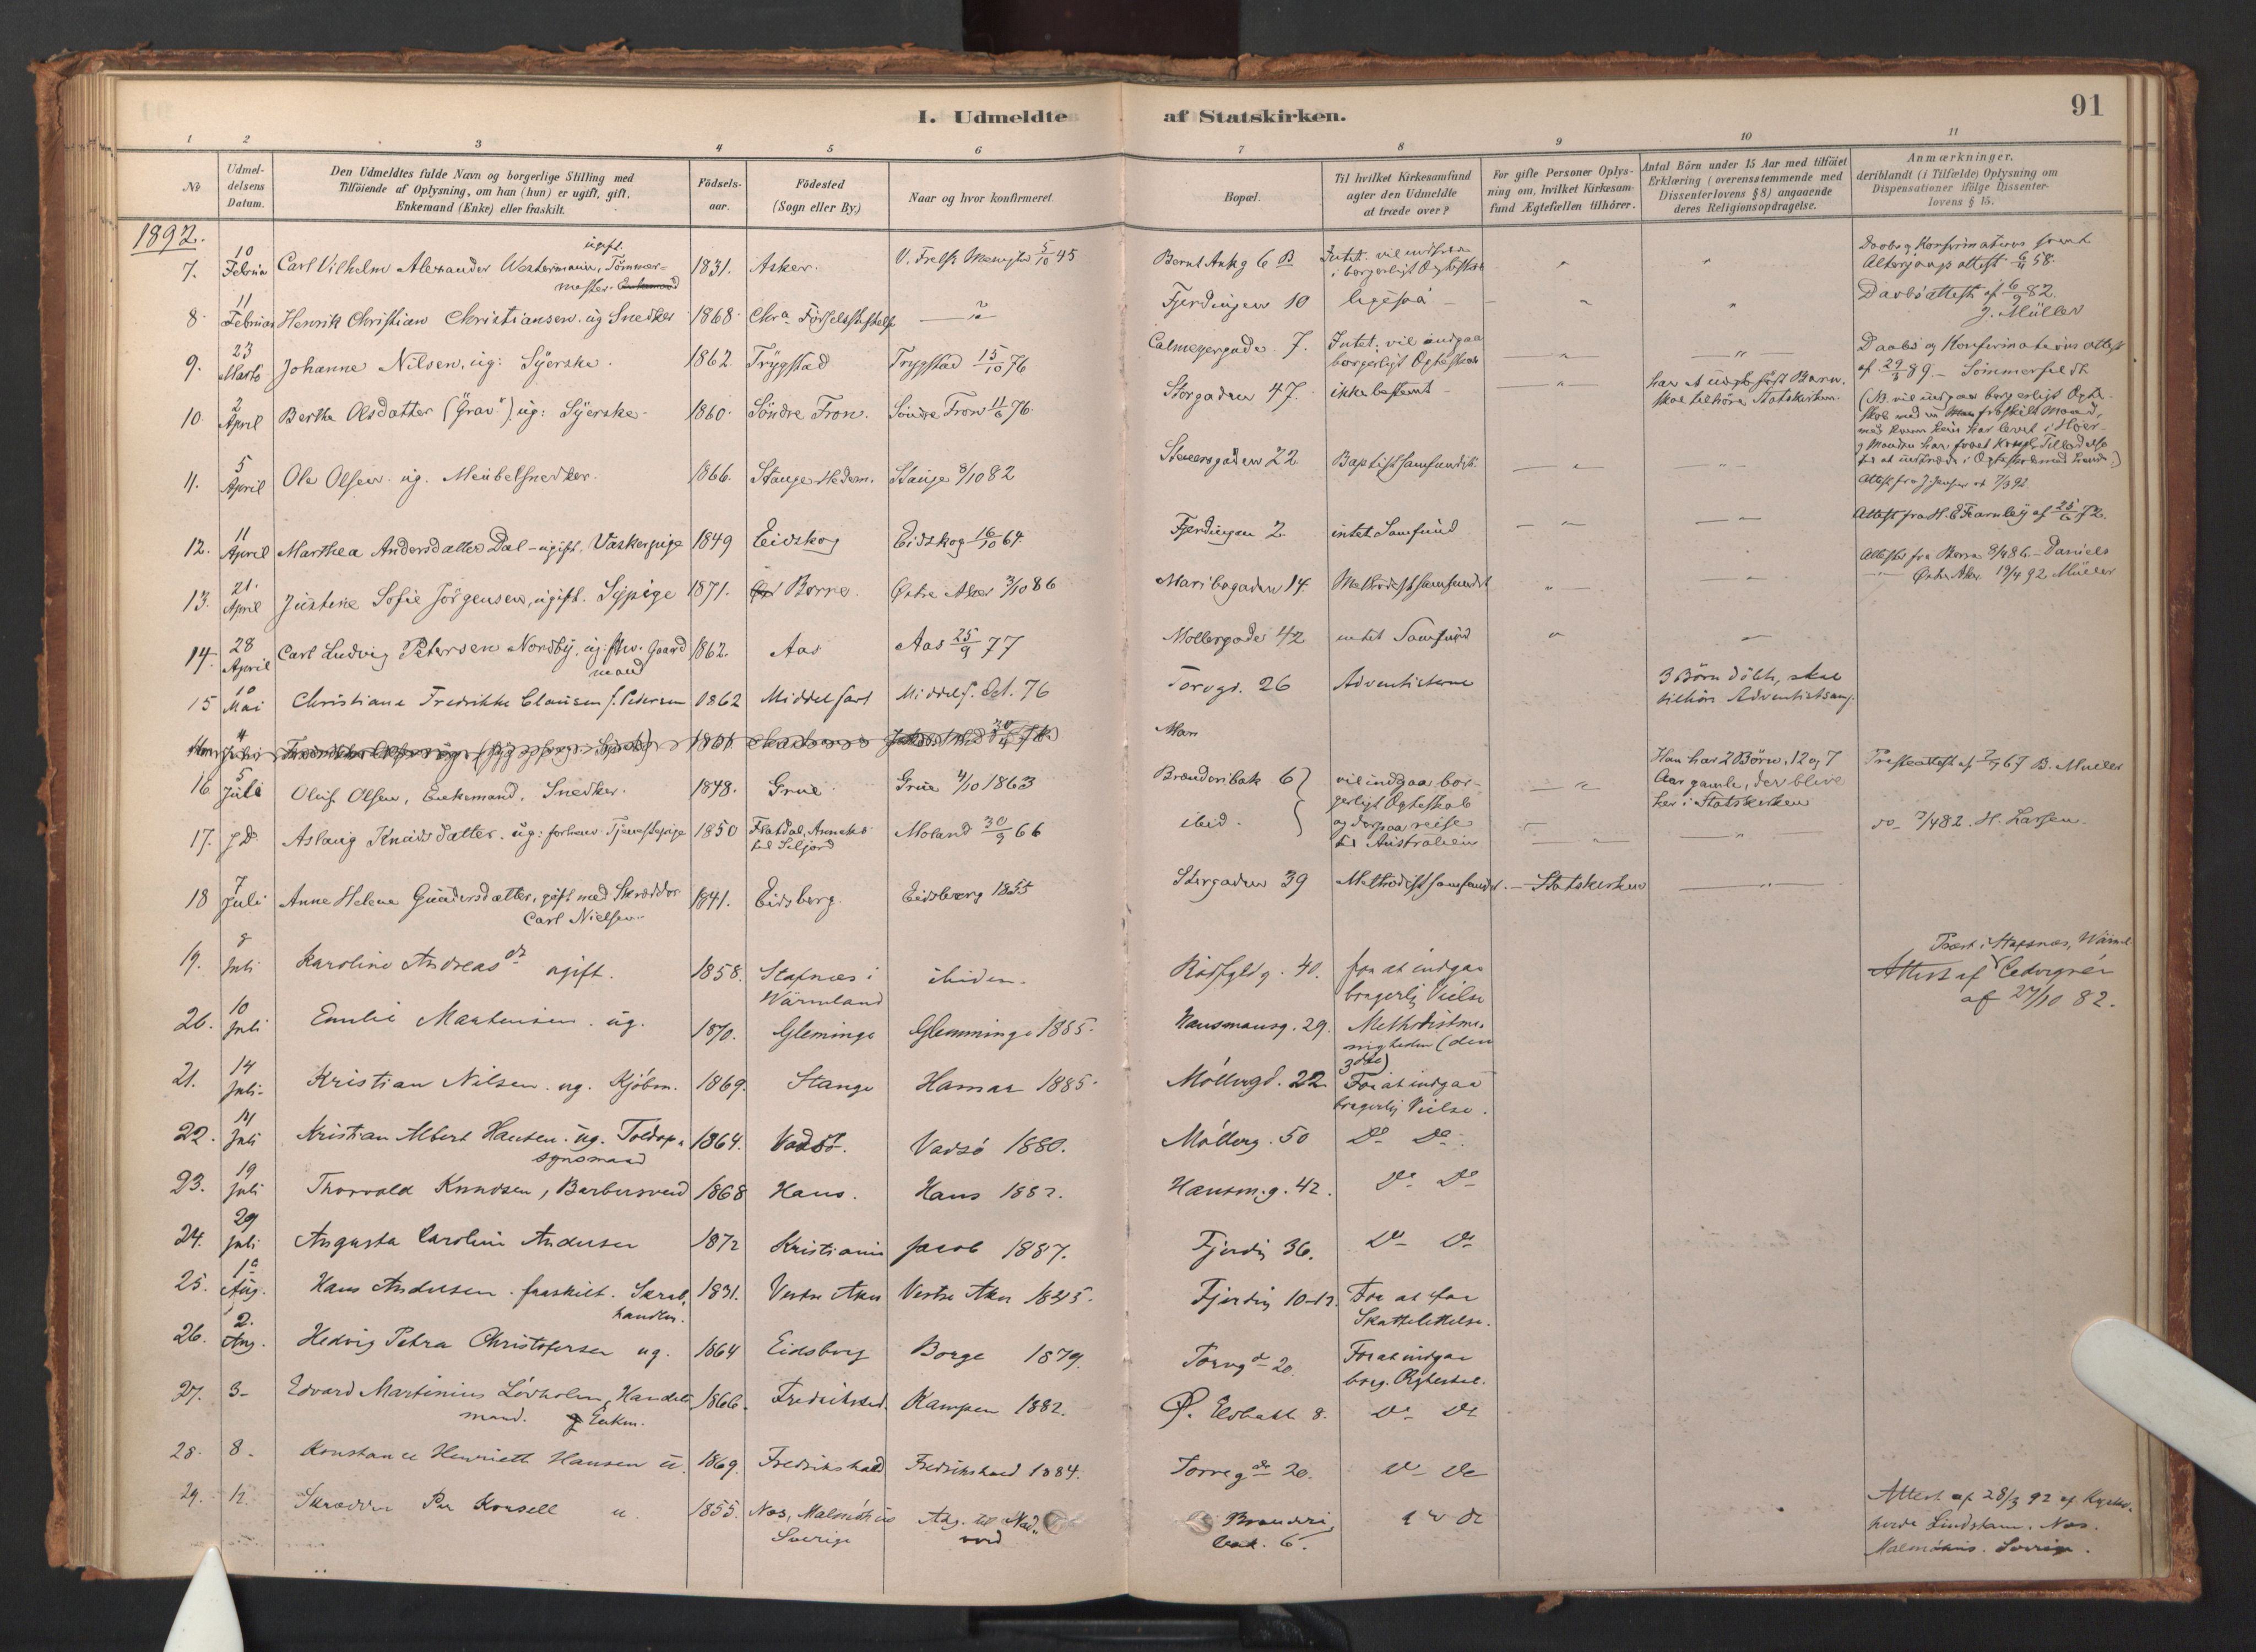 I. Udmeldte af Statskirken.
91
1 2 3 4 5 6 7 8 9 10 11
No
Udmeldelsens Datum.
Den Udmeldtes fulde Navn og borgerlige Stilling med
Tilföiende af Oplysning, om han (hun) er ugift, gift,
Enkemand (Enke) eller fraskilt.
Födselsaar.
Födested
(Sogn eller By.)
Naar og hvor konfirmeret.
Bopæl.
Til hvilket Kirkesamfund
agter den Udmeldte
at træde over?
For gifte Personer Oplys-
ning om, hvilket Kirkesam-
fund Ægtefællen tilhörer.
Antal Börn under 15 Aar med tilföiet
Erklæring (overensstemmende med
Dissenterlovens § 8) angaaende
deres Religionsopdragelse.
Anmærkninger,
deriblandt (i Tilfælde) Oplysning om
Dispensationer ifölge Dissenter-
lovens § 15.
1892.
7. 10 Februar Carl Vilhelm Alexander Westermann, Tömmermester. ugift. 1831. Asker. V. Frels. Menighed 5/10 45 Bernt Ankg 6 B Intet. vil indtræde i borgerligt Ægteskab Daabs og Konfirmations samt Altergangsattest 6/4 58.
8. 11 Februar Henrik Christian Christiansen. ug Snedker 1868. Chra Fødselsstiftelse Fjerdingen 10 ligesaa Daabsattest af 6/9 82. J. Müller
9. 23 Marts Johanne Nilsen, ug: Syerske. 1862. Trygstad Trygstad 15/10 76 Calmeyergade 7. Intet. vil indgaa borgerligt Ægteskab Daabs og Konfirmations attest af 29/3 89. Sommerfeldt
10. 2 April Berthe Olsdatter ("Grav") ug: Syerske. 1860. Söndre Fron. Söndre Fron 11/6 76. Storgaden 47. ikke bestemt har et Barn. skal tilhöre Statskirken. (NB. vil indgaa borgerligt Ægteskab med en fraskilt Mand,
11. 5 April Ole Olsen. ug. Meubelsnedker. 1866. Stange Hedem. Stange 8/10 82 Steenersgaden 22 Baptistsamfundet. Attest fra J. Jensen af 7/3 92
12. 11 April Marthea Andersdatter Dal - ugift. Vaskerpige 1849 Eidskog Eidskog 16/10 64. Fjerdingen 2. intet Samfund Attest fra H. C. Thornley af 25/6 72.
13. 21. April Justine Sofie Jörgensen, ugift. Sypige 1871. Borre. Østre Aker 3/10 86 Maribogaden 14. Methodistsamfundet Attester fra Borre 9/4 86 - Daniels Østre Aker 19/4 92 Müller
14. 28 April Carl Ludvig Petersen Nordby, ug: fhv. Gaardmand 1862. Aas Aas 25/9 77 Møllergade 42 intet Samfund
15 10 Mai Christiane Fredrikke Clausen f. Pedersen 1862 Middelfart Middelf. Oct. 76 Torvgd. 26 Adventisterne 3 Börn döbte, skal tilhöre Adventistsamf.
16 5 Juli Oluf Olsen, Enkemand. Snedker. 1848. Grue. Grue 4/10 1863 Brænderibak 6 vil indgaa borgerligt Ægteskab og derpaa reise til Australien Han har 2 Börn, 12 og 7 Aar gamle, der blive her i Statskirken Presteattest af 2/7 67 B. Müller
17. J.D. Aslaug Knudsdatter. ug: forhenv. Tjenestepige 1850 Flatdal, Anneks til Seljord Moland 30/9 66 ibid. do 7/4 82. H. Larsen.
18 7 Juli Anne Helene Gundersdatter, gift med Skrædder Carl Nielsen. 1841. Eidsberg. Eidsberg 1855 Storgaden 39 Methodistsamfundet. Statskirken
19. 8 Juli Karoline Andreasdr ugift. 1858. Stafnæs i Wärmland ibidem. Rödfyldg. 40. for at indgaa borgerlig Vielse Attest af Præst i Stafsnæs, Wärml. Cedergrén af 27/10 82.
20. 10 Juli Emilie Martinsen. ug. 1870. Gleminge Glemminge 1885. Hausmansg. 29. Methodistmenigheden (den 3die)
21. 14 Juli. Kristian Nilsen. ug. Kjöbm. 1869. Stange Hamar 1885. Möllergd. 22 For at indgaa borgerlig Vielse.
22. 14 Juli Kristian Albert Hansen. ug. Toldopsynsmand 1864. Vadsö. Vadsö 1880. Mollerg. 50 Do Do
23. 19 Juli Thorvald Knudsen, Barbersvend 1868 Haus. Haus 1882. Hausm.g. 42. Do Do
24. 29 Juli Augusta Caroline Andersen 1872 Kristiania Jacob 1887. Fjerding 36. Do Do
25. 1o Aug. Hans Andersen. fraskilt. Skraphandler. 1831. Vestre Aker Vestre Aker 1845. Fjerding 10-12. For at faa Skattelettelse.
26. 2. Aug. Hedvig Petra Christofersen ug. 1864 Eidsberg Borge 1879. Torvgd 20. For at indgaa borg. Ægteskab.
27. 3- Edvard Martinius Lövholm, Handelsmand. Enkm. 1866. Fredrikstad. Kampen 1882. Ø. Elvbakk 8. Do Do
28. 8- Konstance Henriette Hansen u. 1869. Fredrikshald Fredrikshald 1884. Torvegde 20. Do Do
29. 12. Skrædder Per Korsell u. 1855. Næs, Malmöhus Sverige Adg. til Nadverd Brænderibak. 6. Do Do Attest af 28/3 92 af Kyrkoherde Lindstam. Næs. Malmöhus. Sverige.